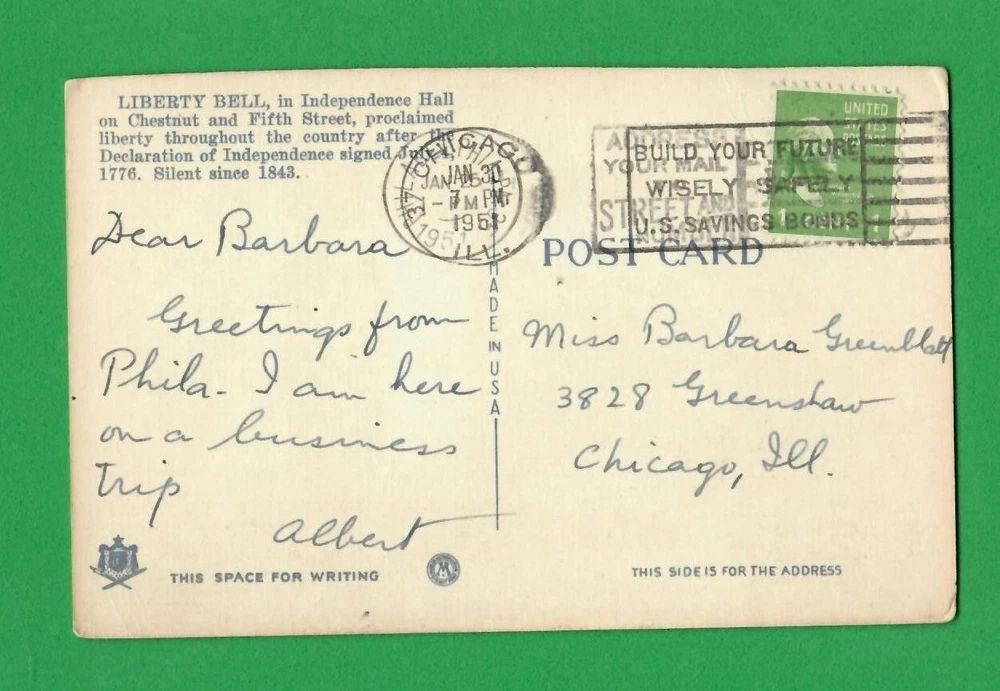 LIBERTY BELL, in Independence Hall
on Chestnut and Fifth Street, proclaimed
liberty throughout the country after the
Declaration of Independence signed
1776. Silent since 1843.
CHICAGO
JAN 30
7 PM
1951
ILL.
ADDRESS
YOUR MAIL
STREET AND
BUILD YOUR FUTURE
WISELY SAFELY
U.S. SAVINGS BONDS
UNITED
STATES
POST CARD
MADE IN USA
Dear Barbara
Greetings from
Phila. I am here
on a business
trip
Albert
Miss Barbara Greenblatt
3828 Greenshaw
Chicago, Ill.
THIS SPACE FOR WRITING
THIS SIDE IS FOR THE ADDRESS